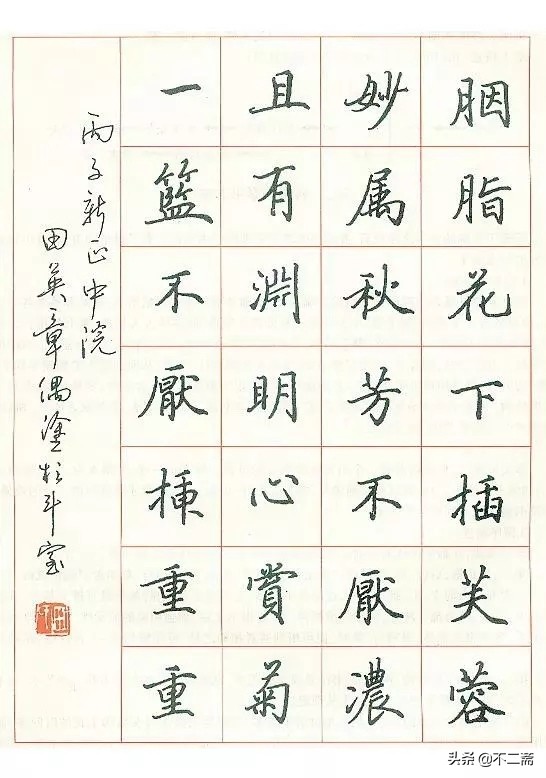 胭脂花下插芙蓉
妙属秋芳不厭濃
且有淵明心賞菊
一籃不厭挿重重
丙子新正中浣
田英章偶塗於斗室
头条 @不二斋